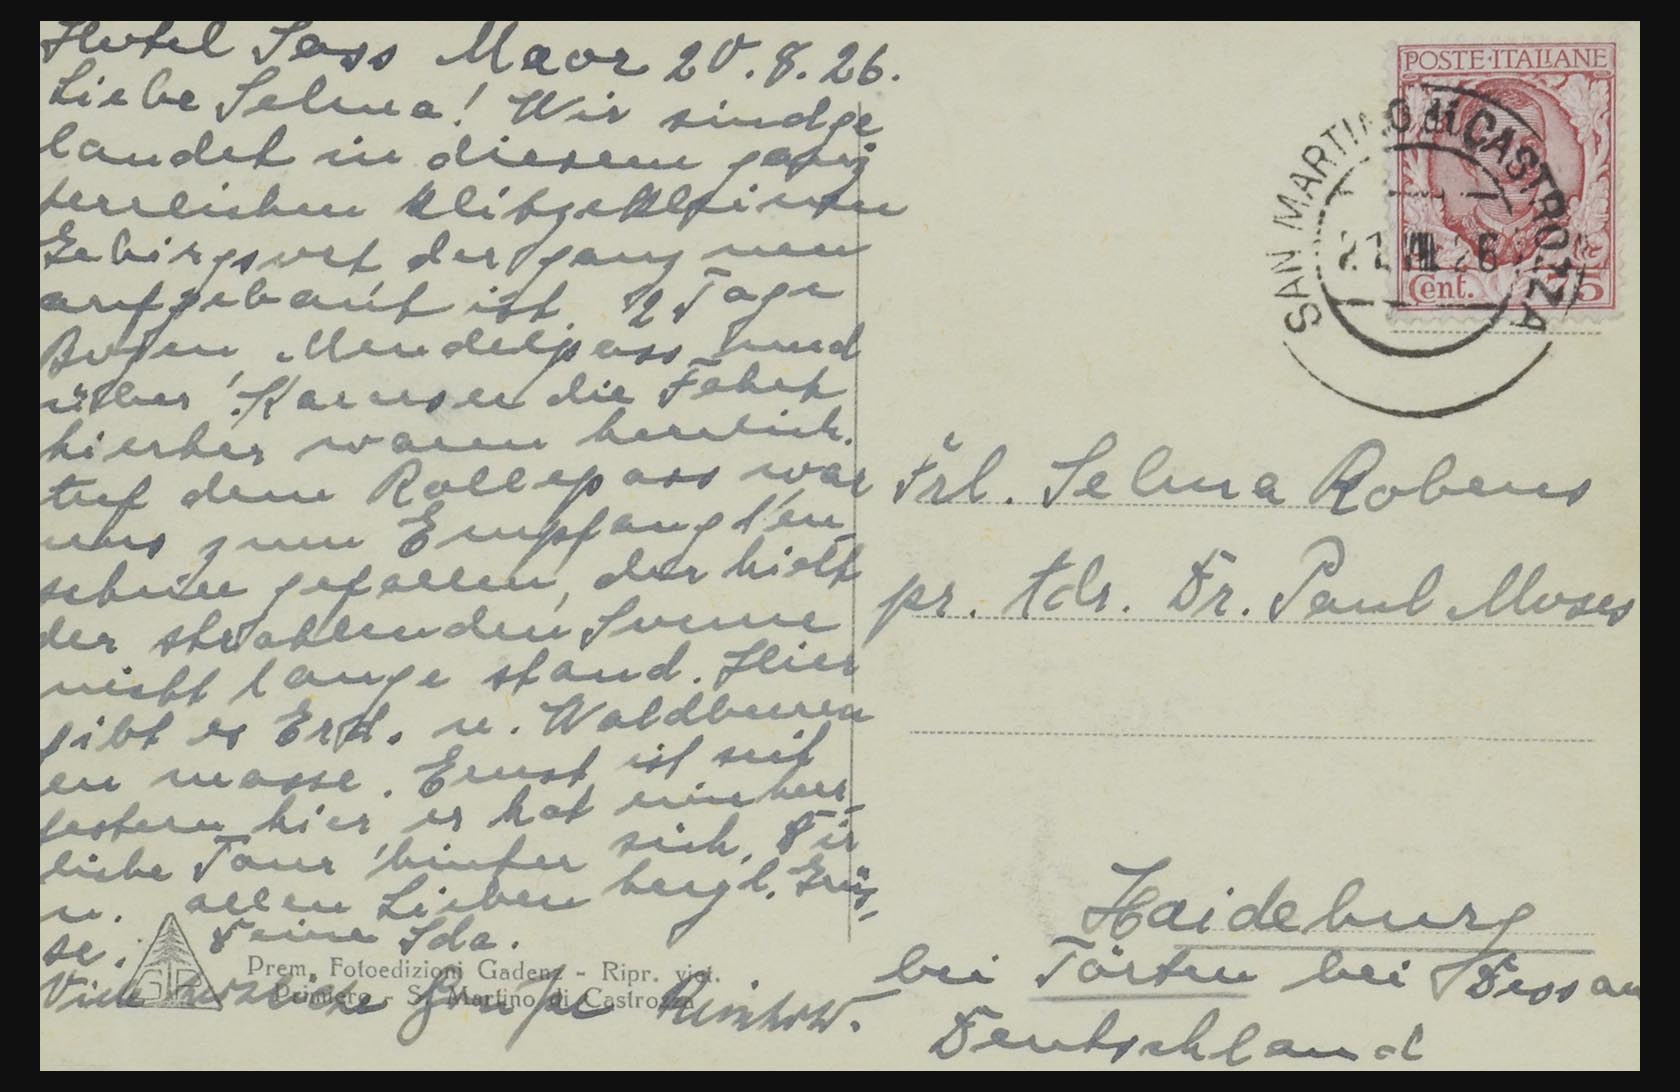 Hotel Sass Maor 20.8.26.
Liebe Selma! Wir sind ge
landet in diesem ganz
herrlichen klitzekleinen
Gebirgsort der ganz neu
aufgebaut ist. 2 Tage
Bozen, Mendelpass und
über Karersee die Fahrt
hierher waren herrlich.
Auf dem Rollepass war
uns zum Empfang Neu
schnee gefallen, der hielt
der strahlenden Sonne
nicht lange stand. Hier
gibt es Erd. u. Waldbeeren
en masse. Ernst ist seit
gestern hier, er hat eine herr
liche Tour hinter sich. Dir
u. allen Lieben herzl. Grüs-
se. Deine Ida.
Viele herzliche Grüße
POSTE·ITALIANE
Cent. 75
SAN MARTINO di CASTROZZA
21 VIII 26
Frl. Selma Robens
pr. Adr. Dr. Paul Moses
Haideburg
bei Törten bei Dessau
Deutschland
GR
Prem. Fotoedizioni Gadenz - Ripr. viet.
Primiero - S. Martino di Castrozza